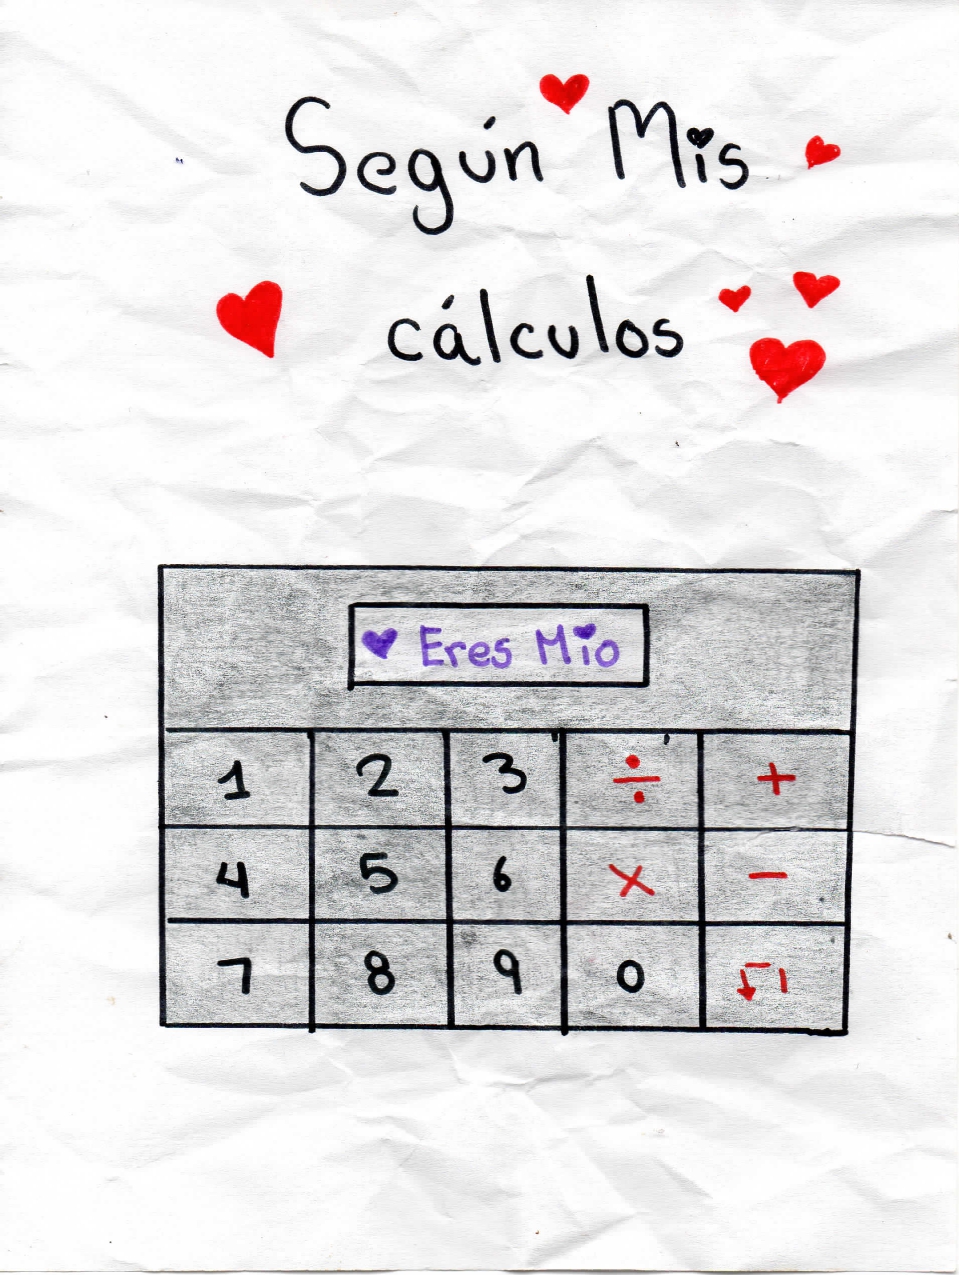 Según Mis
cálculos
Eres Mio
1 2 3 ÷ +
4 5 6 × −
7 8 9 0